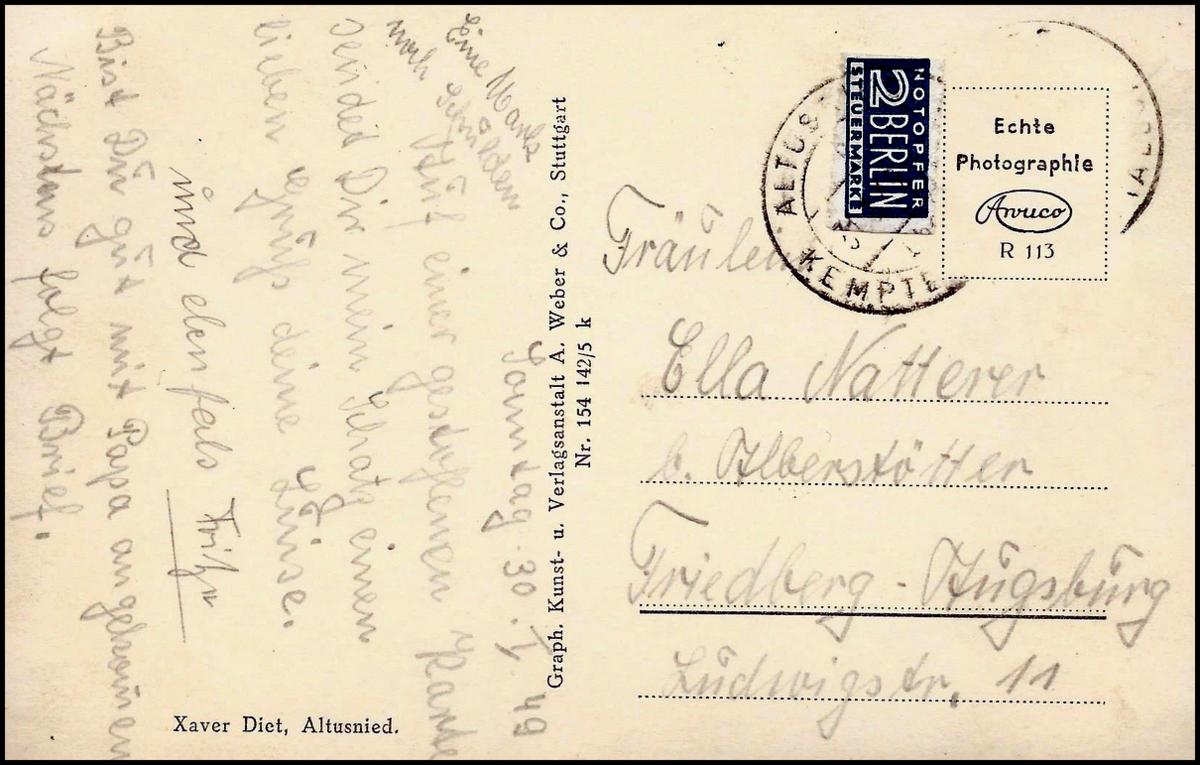 Sonntag. 30. 1. 49
Auf einer gestohlenen Karte
sendet Dir mein Schatz einen
lieben Gruß deine Luise.
und ebenfals Fritz
Bist Du gut mit Papa angekommen
Nächstens folgt Brief.
Eine Marke
noch
Xaver Diet, Altusnied.
Graph. Kunst- u. Verlagsanstalt A. Weber & Co., Stuttgart
Nr. 154 142/5 k
NOTOPFER
2 BERLIN
STEUERMARKE
ALTUS
KEMPTE
Echte
Photographie
Arruco
R 113
Fräulein
Ella Natterer
b. Alberstötter
Friedberg - Augsburg
Ludwigstr. 11